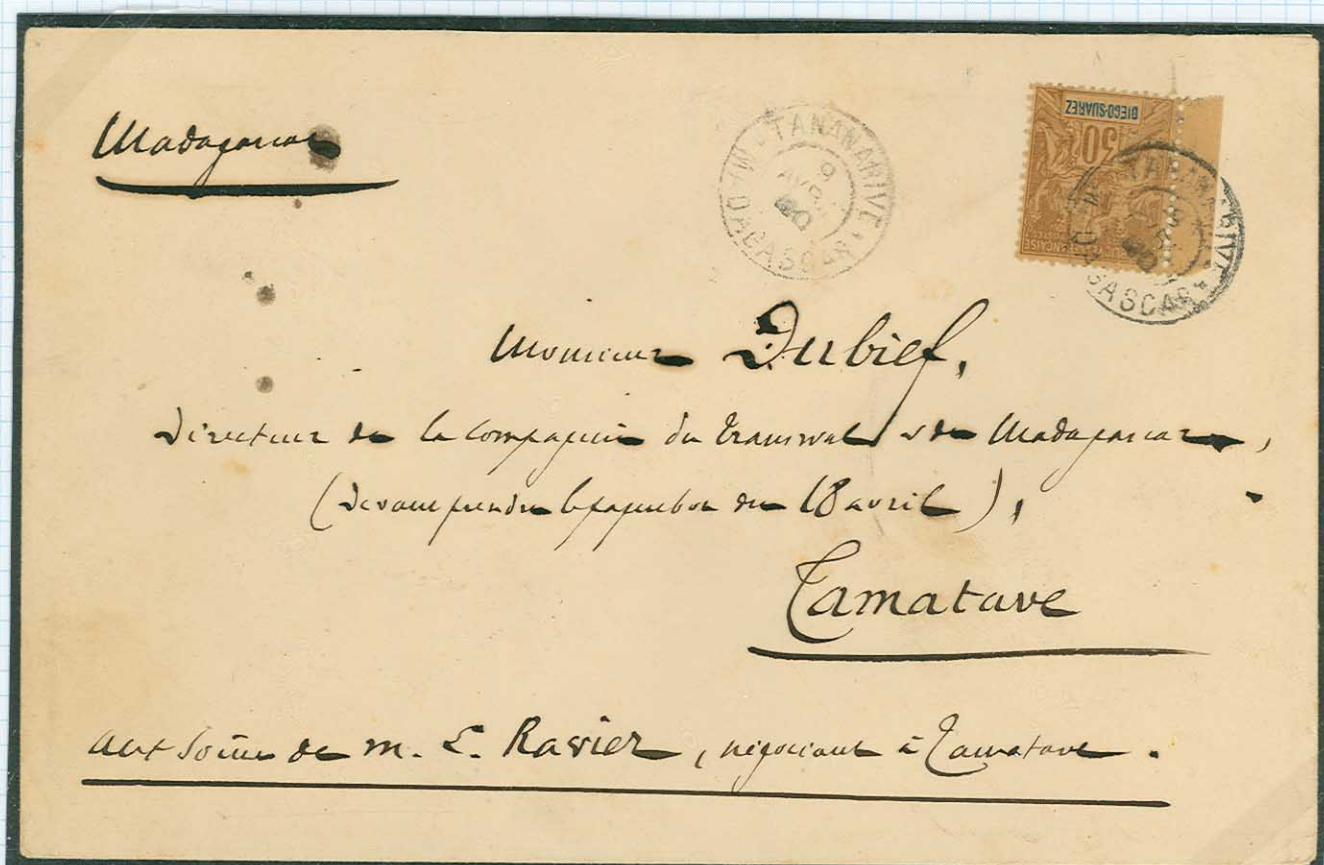 Madagascar
TANANARIVE
9
AVR
MADAGASCAR
DIEGO-SUAREZ
30
TANANARIVE
MADAGASCAR
Monsieur Dubief,
Directeur de la Compagnie du Transwal & de Madagascar,
(devant prendre le paquebot du 18 avril),
Tamatave
aux soins de M. E. Ravier, négociant à Tamatave.